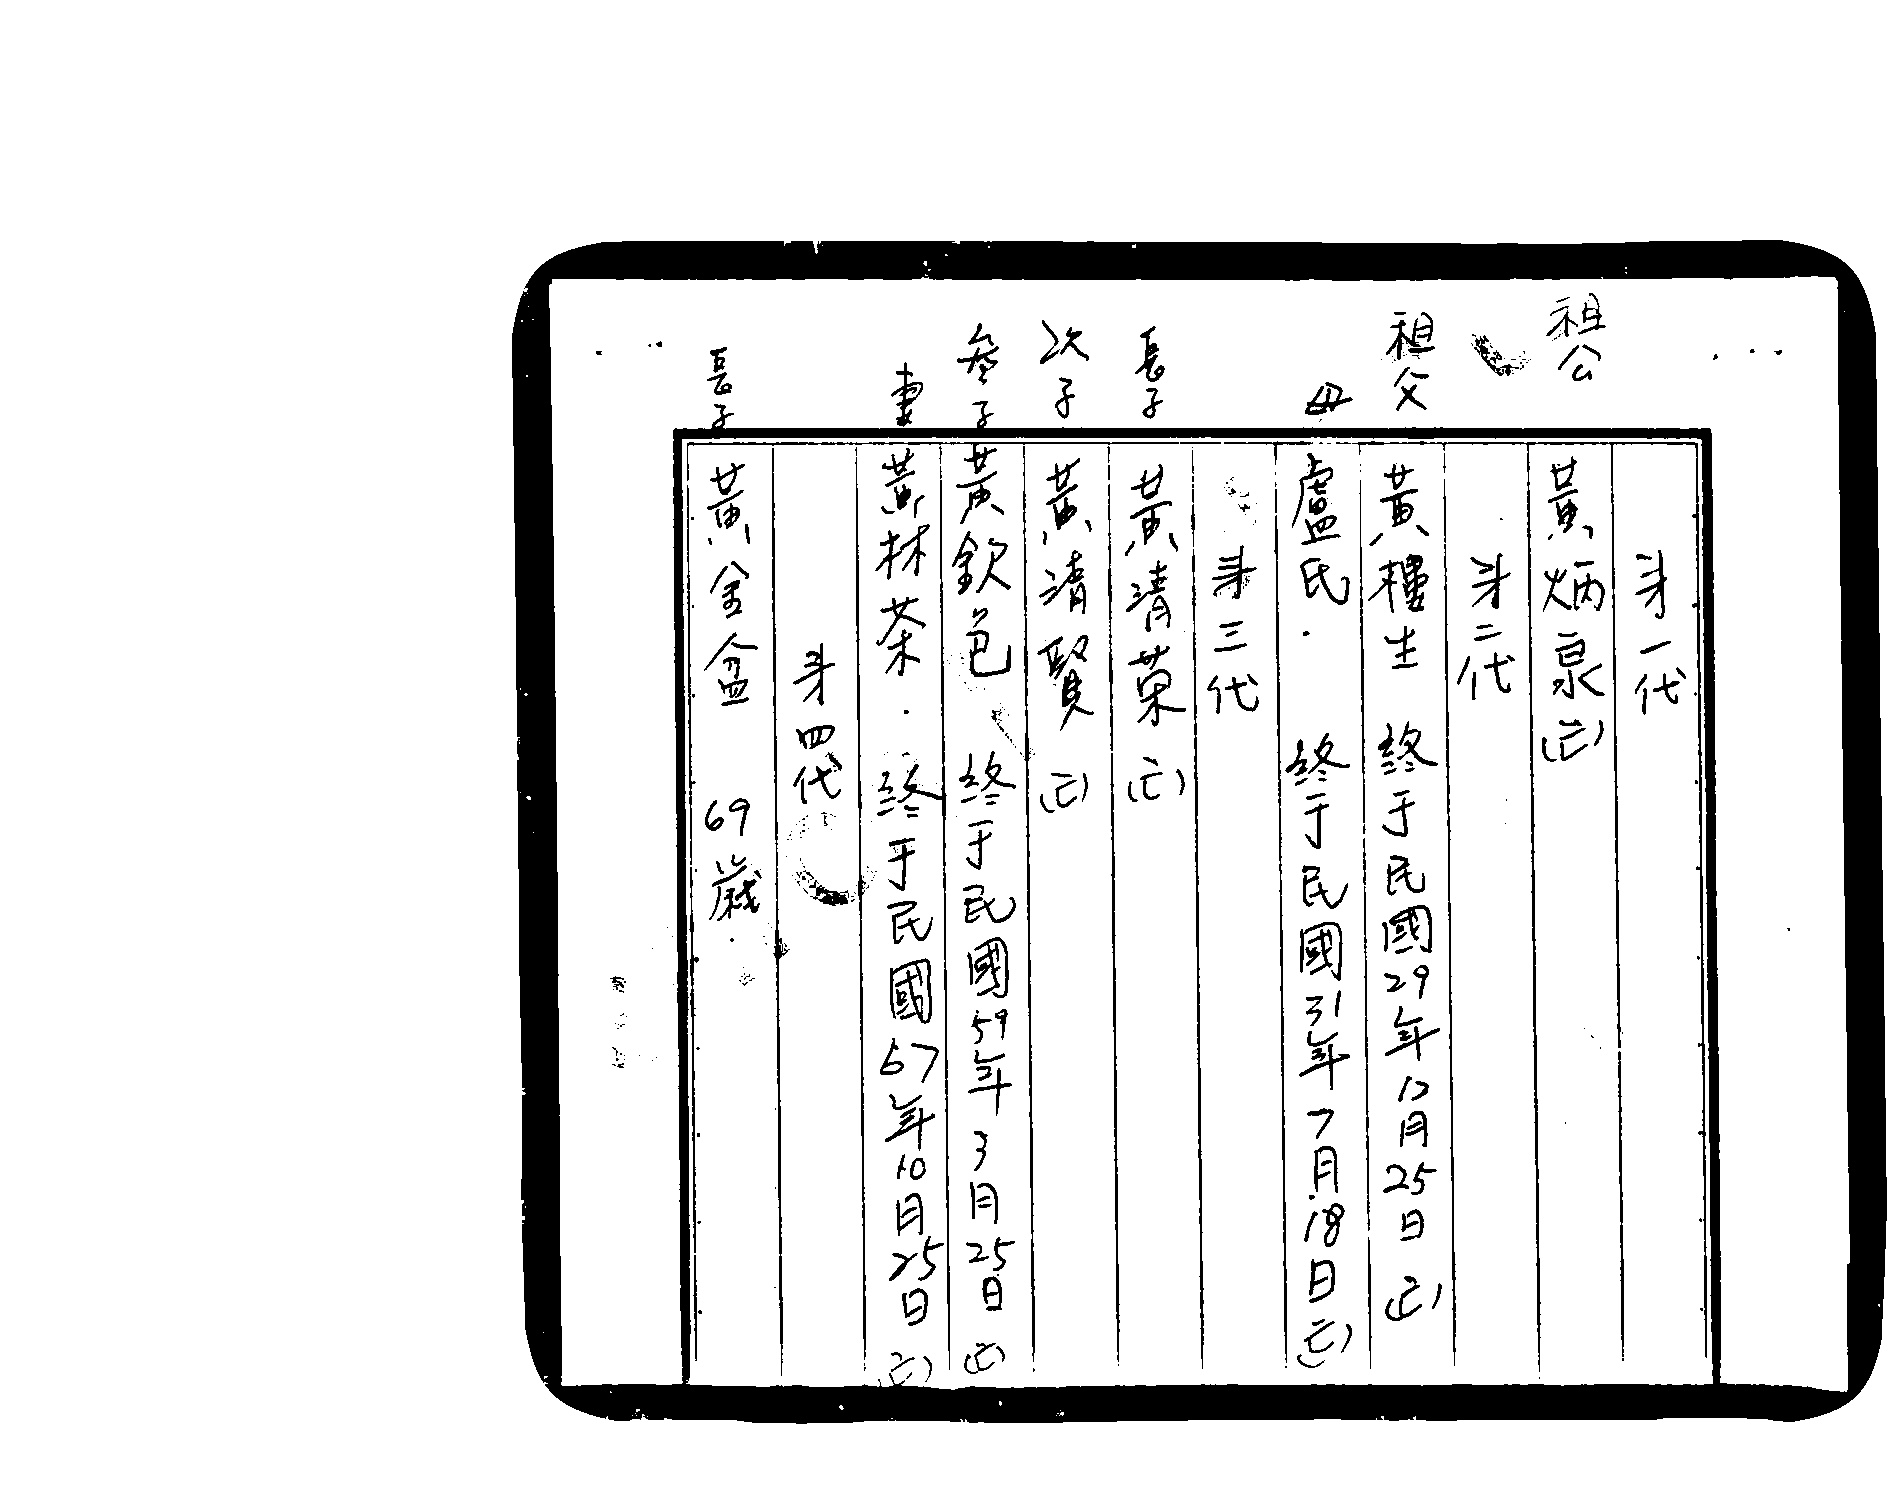 第一代
祖公 黃炳泉(亡)
第二代
祖父 黃樓生 終于民國29年12月25日(亡)
母 盧氏. 終于民國31年7月18日(亡)
第三代
長子 黃清榮(亡)
次子 黃清賢(亡)
參子 黃欽包 終于民國59年3月25日(亡)
妻 黃林茶. 終于民國67年10月25日(亡)
第四代
長子 黃金盆 69歲.